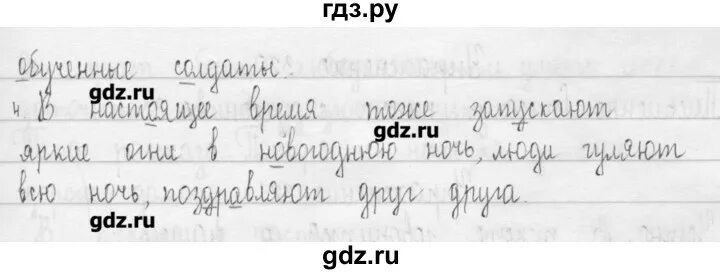 гдз.ру
обученные солдаты.
4. В настоящее время тоже запускают
gdz.ru
яркие огни в новогоднюю ночь, люди гуляют
всю ночь, поздравляют друг друга.
gdz.ru
gdz.ru